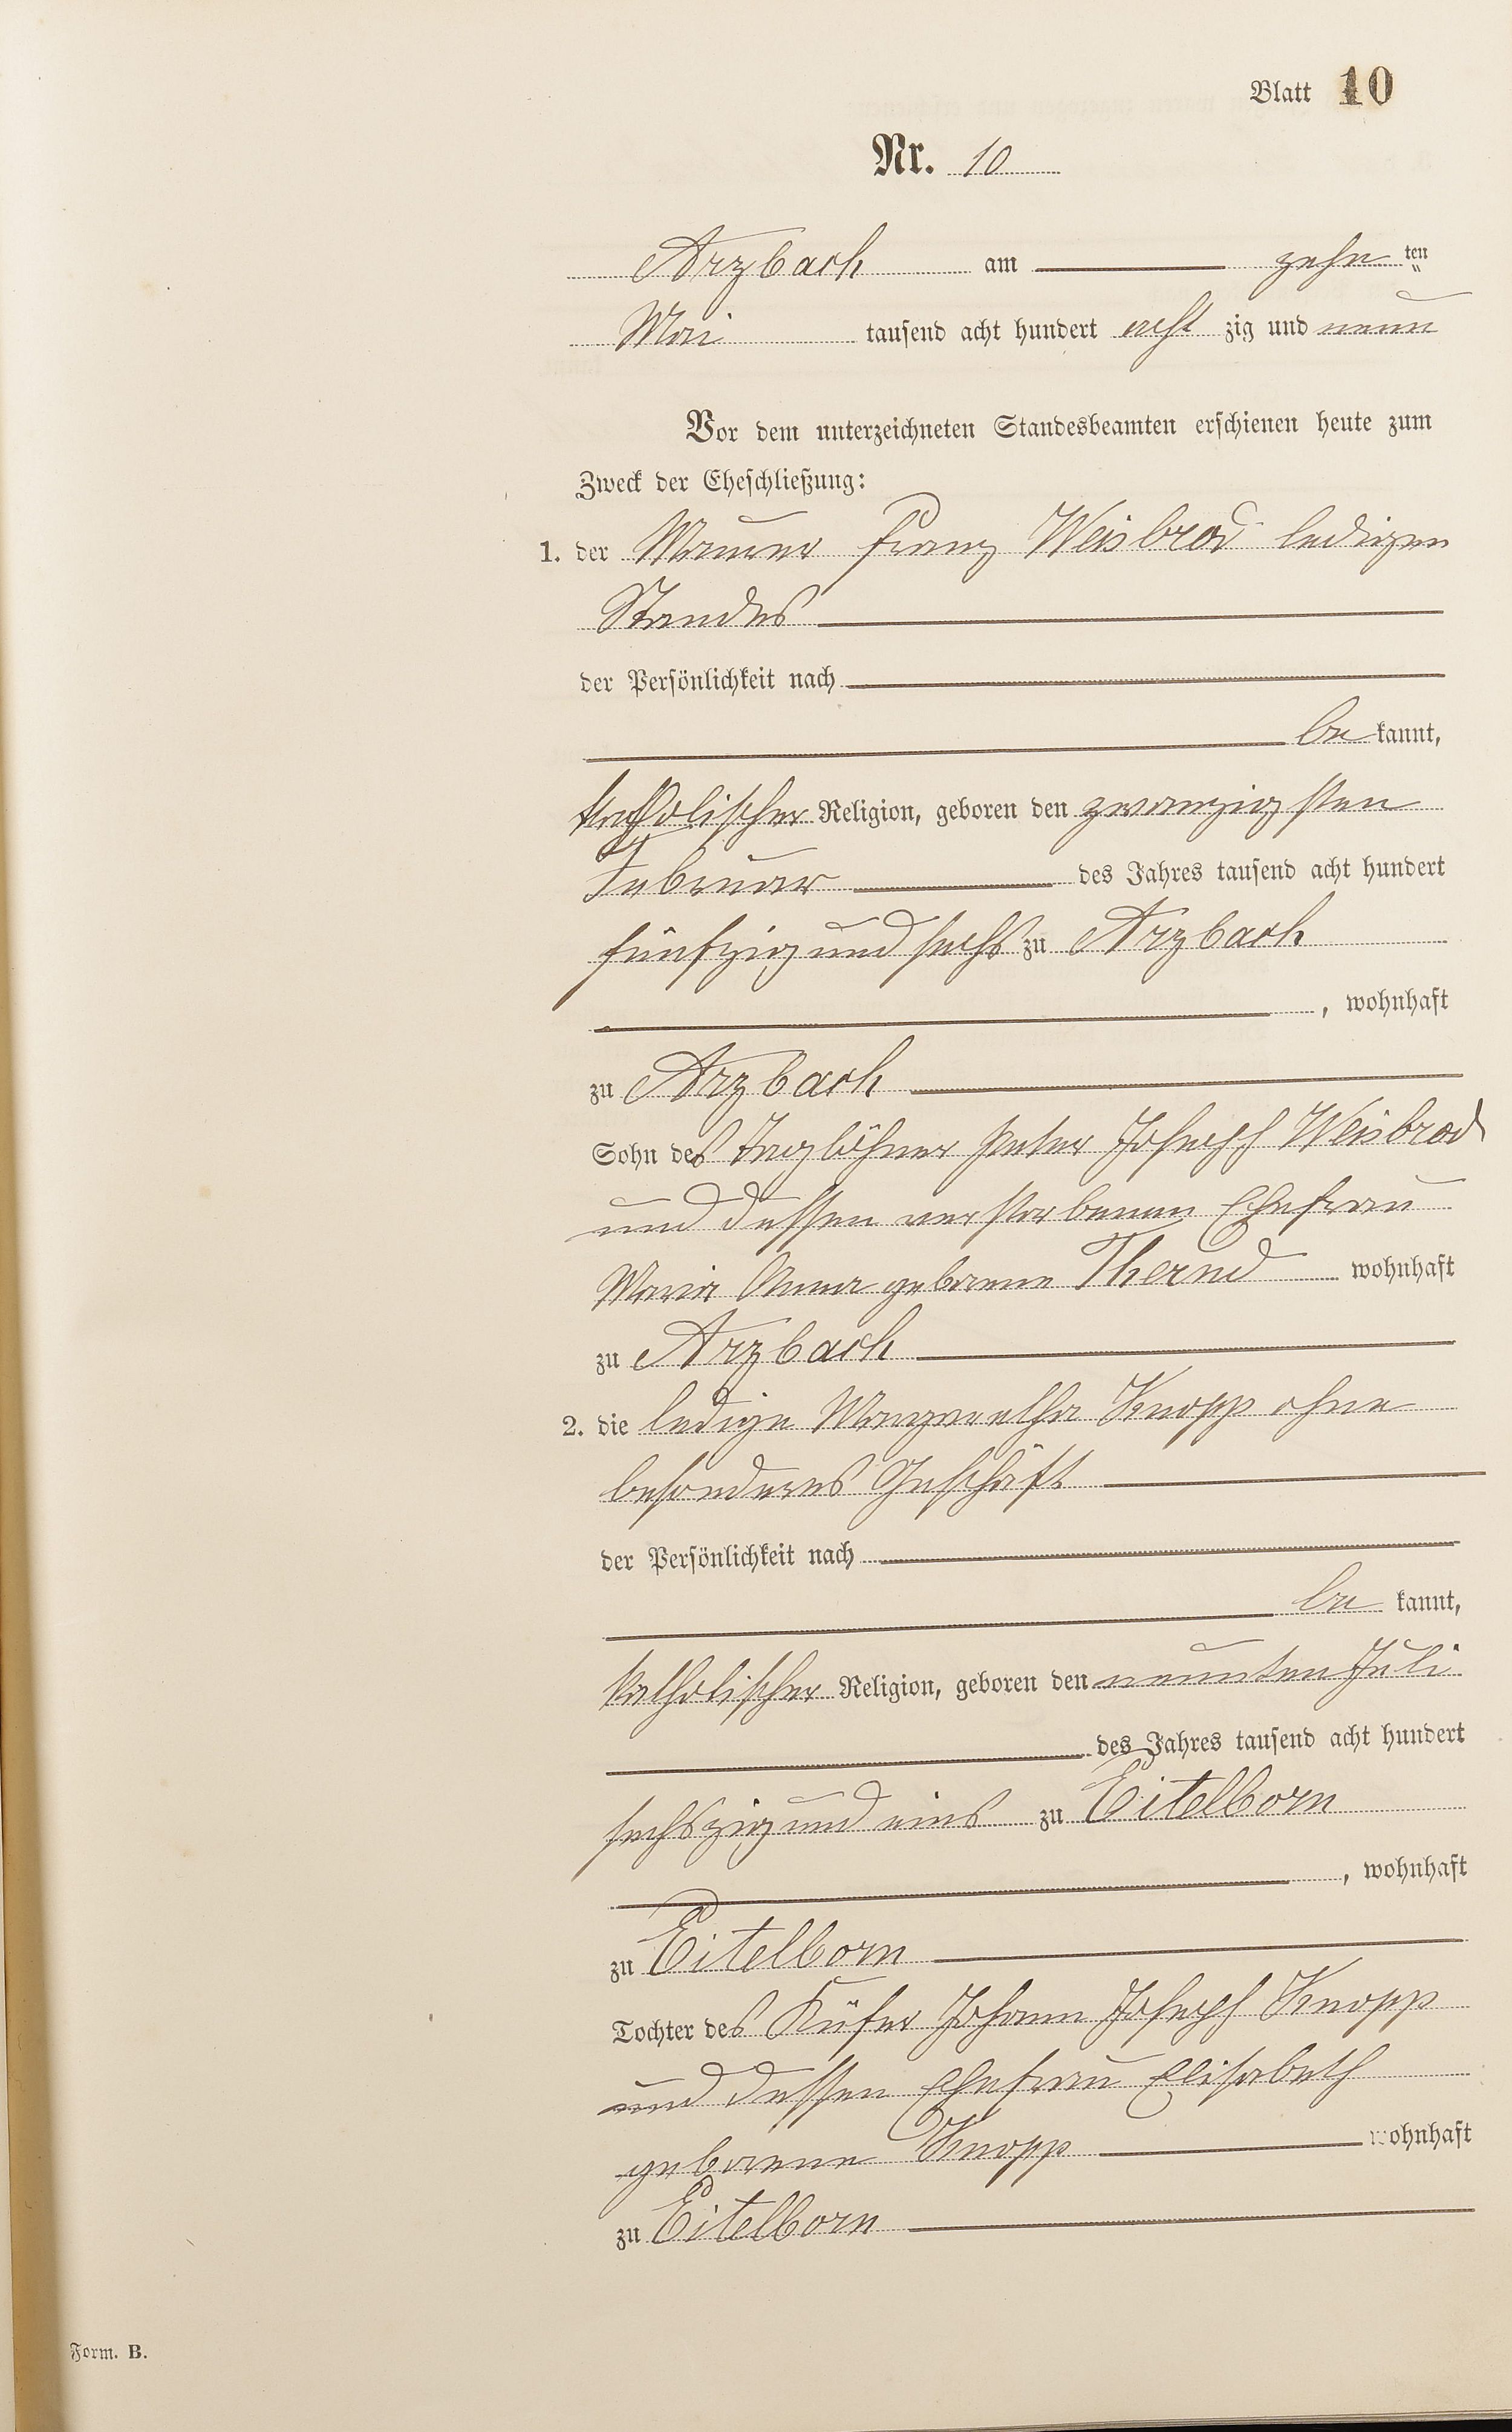 Blatt 10
Nr. 10
Arzbach am zehn ten
Mai tausend acht hundert acht zig und neun
Vor dem unterzeichneten Standesbeamten erschienen heute zum
Zweck der Eheschließung:
1. der Maurer Franz Weisbrod ledigen
Standes
der Persönlichkeit nach
be kannt,
katholischer Religion, geboren den zwanzigsten
Februar des Jahres tausend acht hundert
fünfzig und sechs zu Arzbach
, wohnhaft
zu Arzbach
Sohn des Taglöhner Peter Joseph Weisbrod
und dessen verstorbenen Ehefrau
Maria Anna geborene Thernd wohnhaft
zu Arzbach
2. die ledige Margaretha Knopp ohne
besonderes Geschäft
der Persönlichkeit nach
be kannt,
katholischer Religion, geboren den neunten Juli
des Jahres tausend acht hundert
sechszig und eins zu Eitelborn
, wohnhaft
zu Eitelborn
Tochter des Küfer Johann Joseph Knopp
und dessen Ehefrau Elisabeth
geborene Knopp wohnhaft
zu Eitelborn
Form. B.